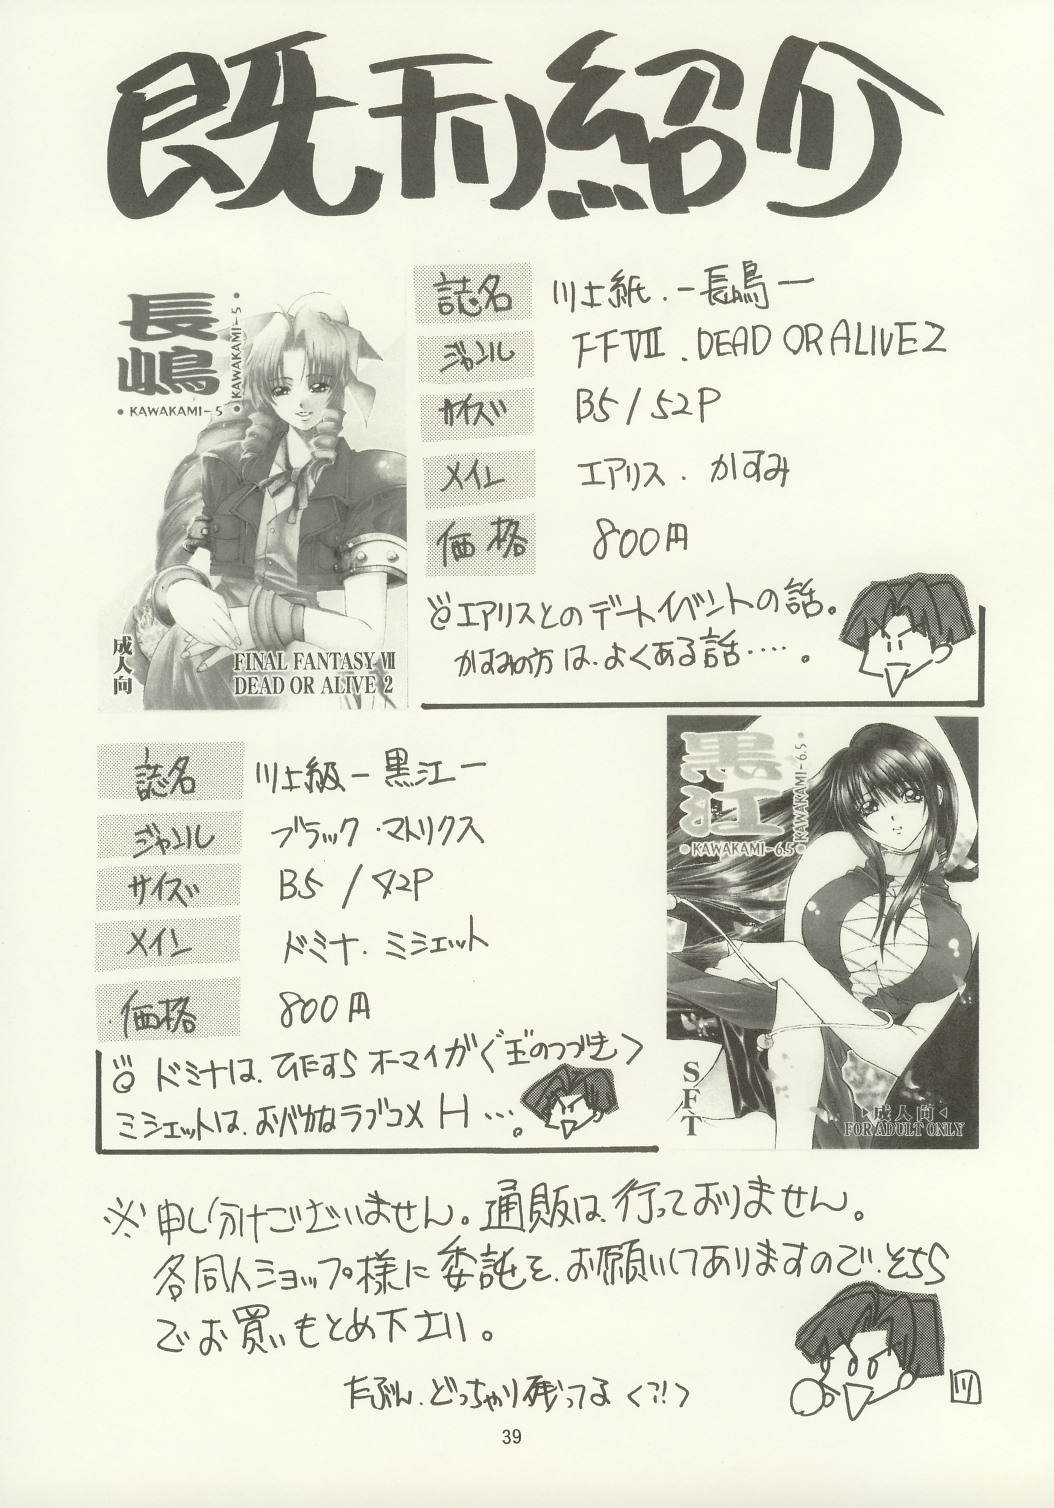 既刊紹介
長嶋
• KAWAKAMI-5
• KAWAKAMI-5 •
成人向
FINAL FANTASY Ⅶ
DEAD OR ALIVE 2
誌名 川上紙.－長嶋－
ジャンル FFⅦ.DEAD OR ALIVE2
サイズ B5/52P
メイン エアリス.かすみ
価格 800円
エアリスとのデートイベントの話。
かすみの方は、よくある話‥‥。
誌名 川上級－黒江－
ジャンル ブラック・マトリクス
サイズ B5/42P
メイン ドミナ.ミシェット
価格 800円
ドミナは、ひたすらオーマイガ
ミシェットは、おバカなラブコメH…。
黒江
•KAWAKAMI-6.5
•KAWAKAMI-6.5•
SFT
成人向
FOR ADULT ONLY
※申し分けございません。通販は、行っておりません。
各同人ショップ様に委託を、お願いしてありますので、そちら
でお買いもとめ下さい。
たぶん、どっちゃり残ってる<?!>
川
39